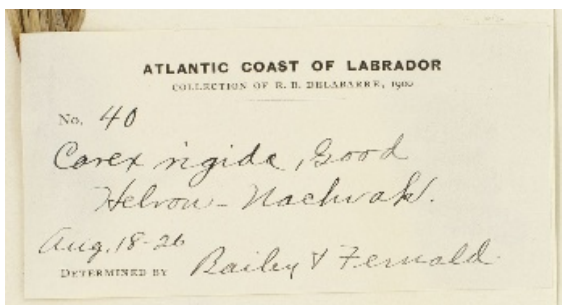 ATLANTIC COAST OF LABRADOR
COLLECTION OF R. B. DELABARRE, 1900
No. 40
Carex rigida, Good
Hebron - Nachvak.
Aug. 18-26
DETERMINED BY Bailey & Fernald.